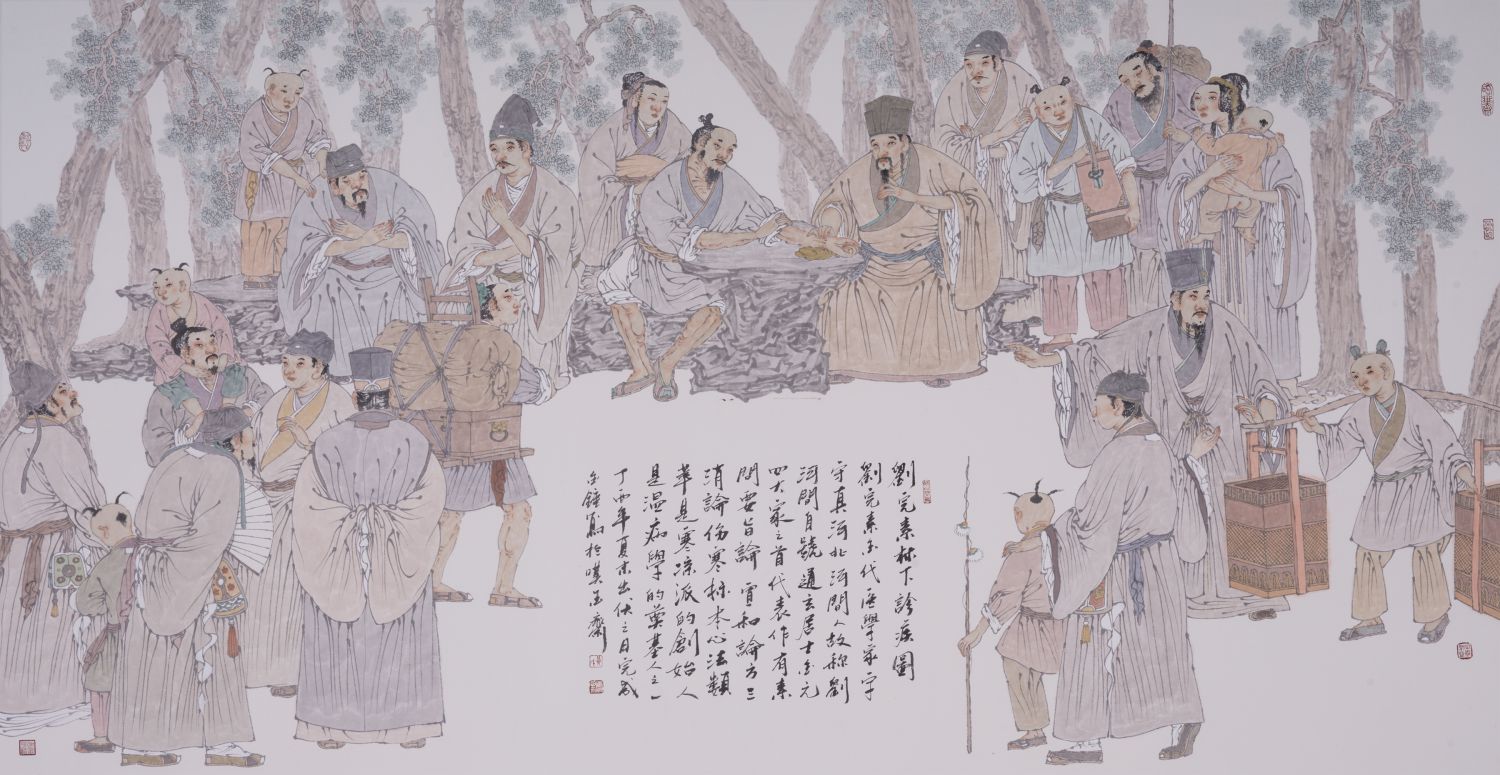 劉完素林下診疾圖
劉完素金代医學家字
守真河北河間人故称劉
河間自號通玄居士金元
四大家之首代表作有素
問要旨論宣明論方三
消論伤寒标本心法類
萃是寒凉派的創始人
是温病學的奠基人之一
丁酉年夏末出伏之日完成
寫於玉齋